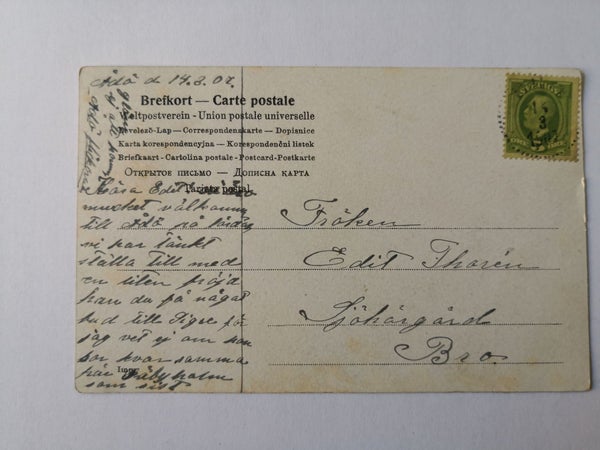 Ådö d 14.3.07.
Brefkort — Carte postale
Weltpostverein - Union postale universelle
Levelező-Lap — Correspondenskarte — Dopisnice
Karta korespondencyjna — Korespondenční listek
Briefkaart - Cartolina postale - Postcard-Postkarte
Открытое письмо — Дописна карта
Tarjeta postal
Kära Edit
mycket välkommen
till Ådö på lördag
vi har tänkt
ställa till med
en liten fröjd
kan du på något
bud till Sigre för
jag vet ej om han
bor kvar samma
här Säbyholm
som sist
Impr
Fröken
Edit Thorén
Sjöhärgård
Bro.
SVERIGE